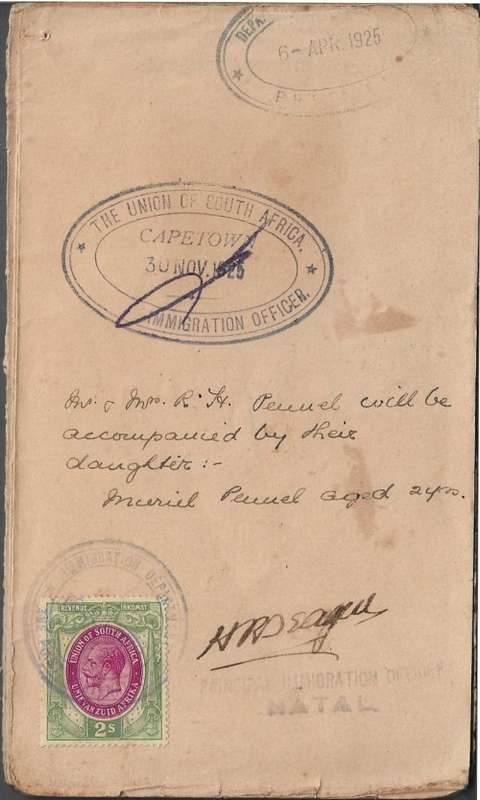 6- APR. 1925
THE UNION OF SOUTH AFRICA.
CAPETOWN
30 NOV. 1925
IMMIGRATION OFFICER.
Mr. & Mrs. R. H. Pennel will be
accompanied by their
daughter :-
Muriel Pennel aged
IMMIGRATION DEPARTMENT
REVENUE INKOMST
UNION OF SOUTH AFRICA
UNIE VAN ZUID AFRIKA
2s
PRINCIPAL IMMIGRATION OFFICER
NATAL